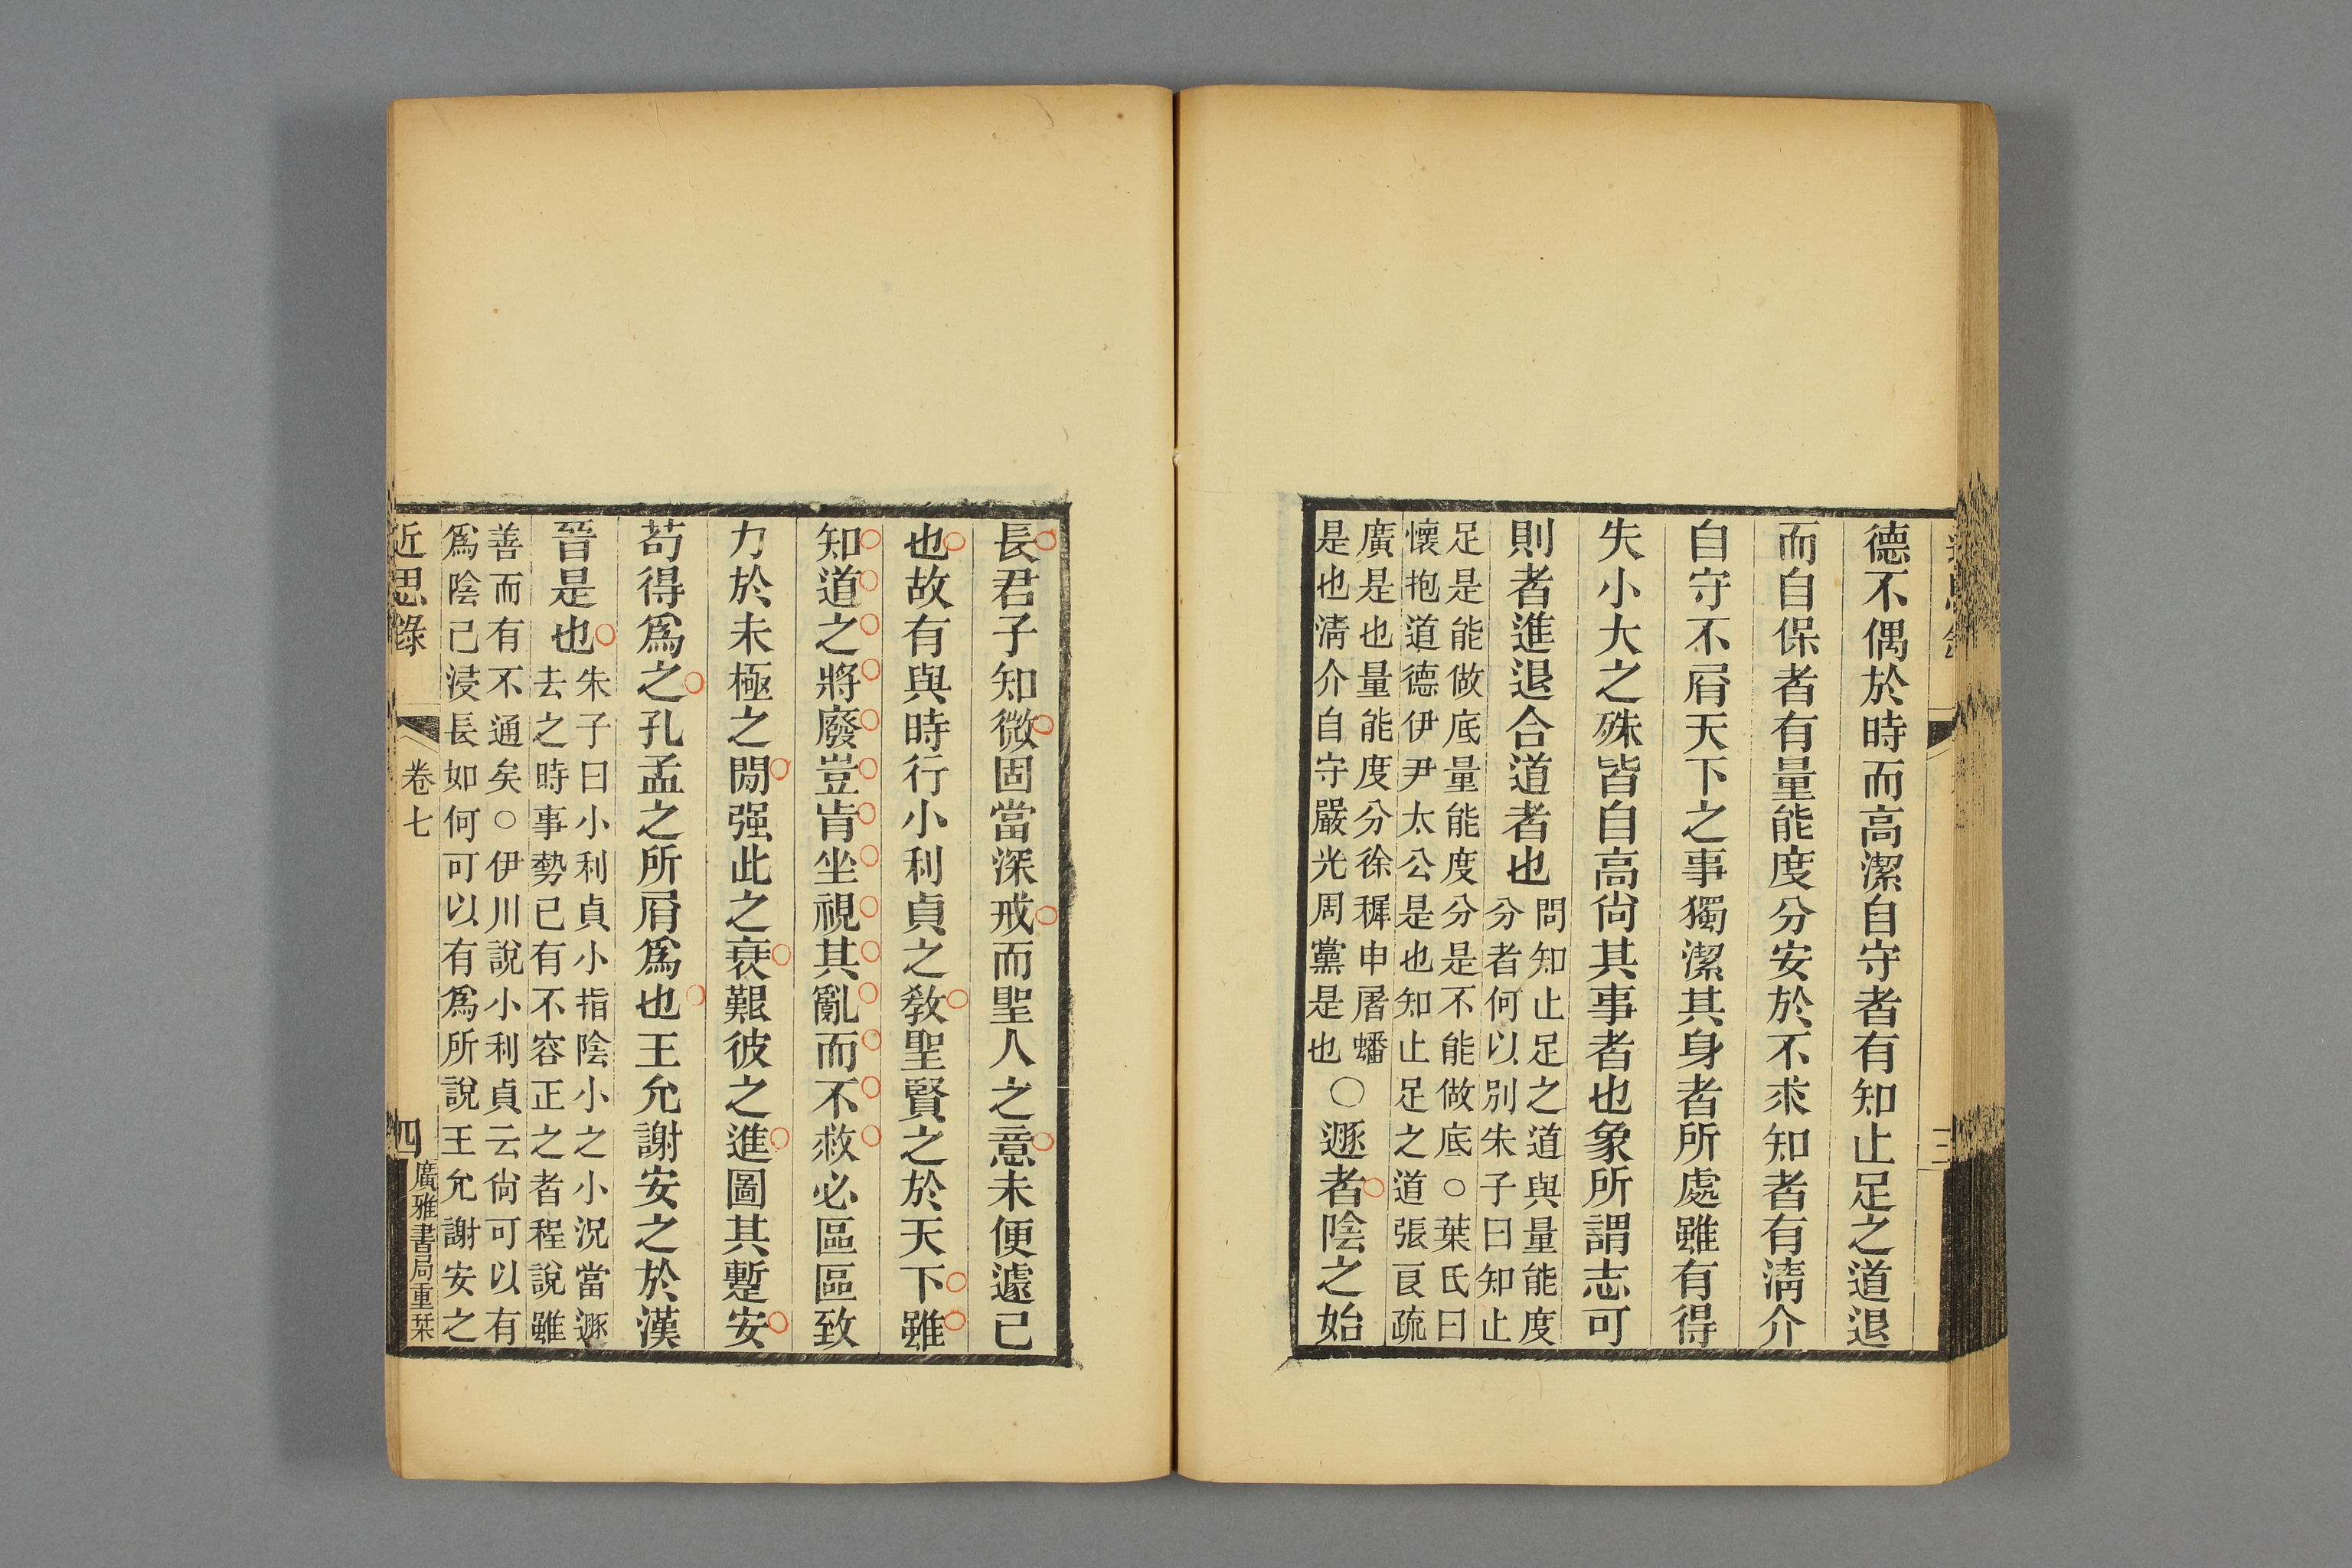 德不偶於時而高潔自守者有知止足之道退
而自保者有量能度分安於不求知者有淸介
自守不屑天下之事獨潔其身者所處雖有得
失小大之殊皆自高尙其事者也象所謂志可
則者進退合道者也
問知止足之道與量能度
分者何以別朱子曰知止
足是能做底量能度分是不能做底○葉氏曰
懷抱道德伊尹太公是也知止足之道張良疏
廣是也量能度分徐穉申屠蟠
是也淸介自守嚴光周黨是也
○遯者陰之始
長君子知微固當深戒而聖人之意未便遽已
也故有與時行小利貞之敎聖賢之於天下雖
知道之將廢豈肯坐視其亂而不救必區區致
力於未極之閒强此之衰艱彼之進圖其暫安
苟得爲之孔孟之所屑爲也王允謝安之於漢
晉是也
朱子曰小利貞小指陰小之小況當遯
去之時事勢已有不容正之者程說雖
善而有不通矣○伊川說小利貞云尙可以有
爲陰已浸長如何可以有爲所說王允謝安之
近思錄
卷七
四
廣雅書局重栞